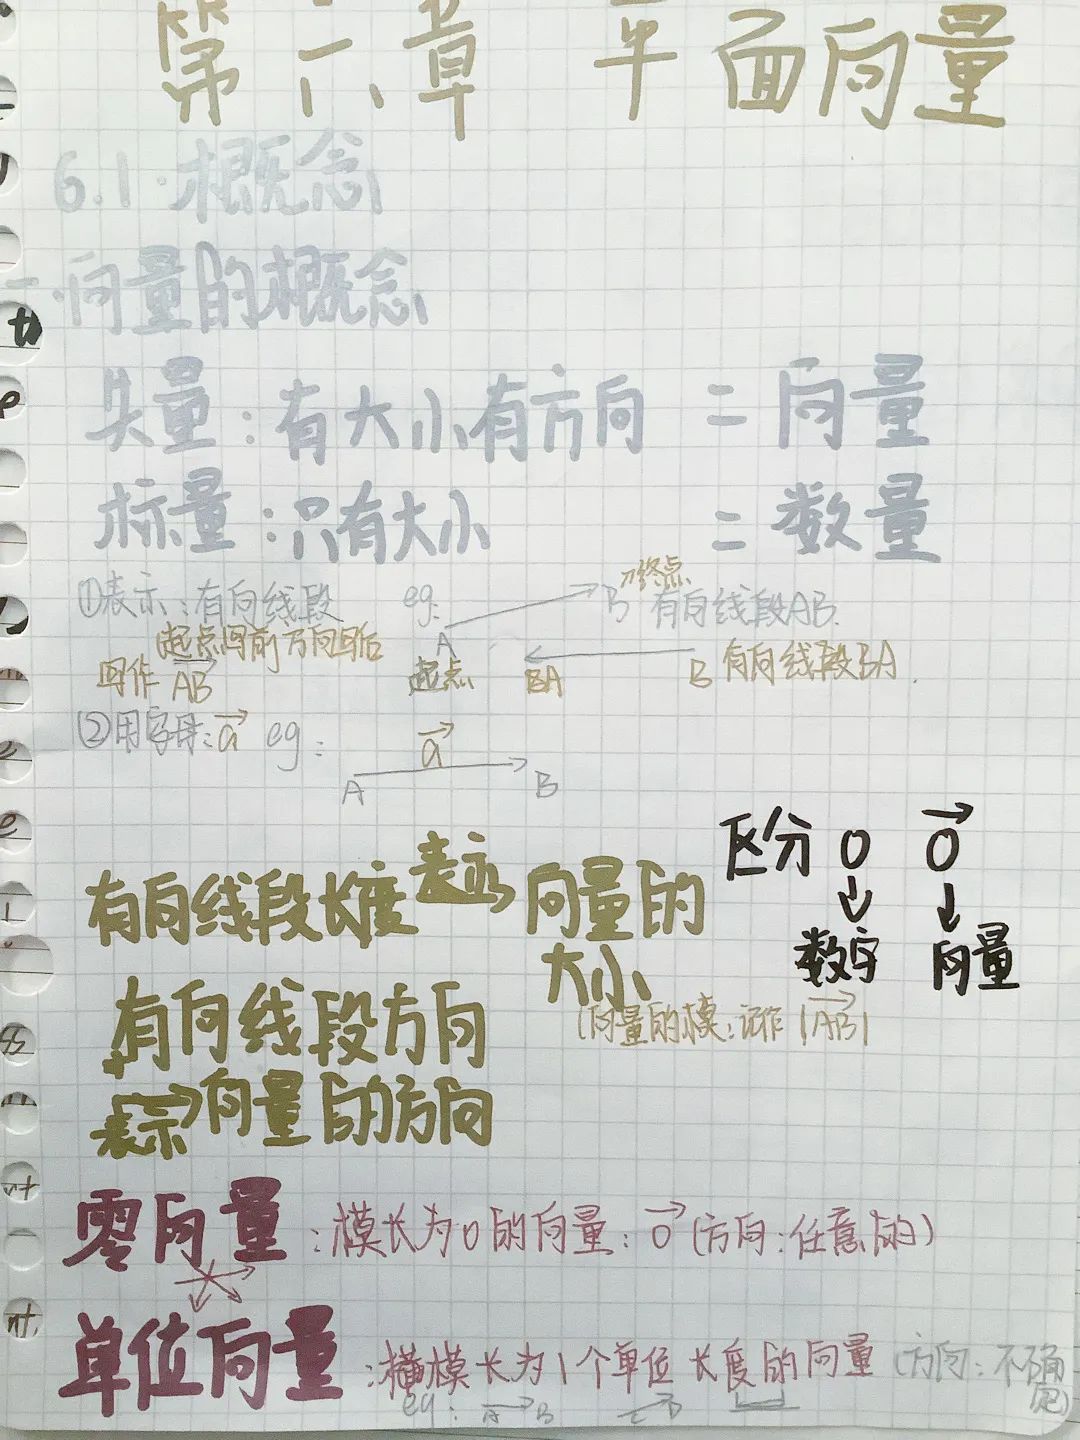 第六章 平面向量
6.1.概念
一.向量的概念
矢量:有大小有方向 = 向量
标量:只有大小 = 数量
①表示:有向线段 eg: A B 终点 有向线段AB.
(起点写前方向写后
写作 AB 起点 BA B 有向线段BA.
②用字母:a eg: a
A B
区分 0 0
数字 向量
有向线段长度表示向量的
大小
(向量的模:记作|AB|
有向线段方向
表示向量的方向
零向量:模长为0的向量:0(方向:任意的)
单位向量:模长为1个单位长度的向量(方向:不确定)
eg: A B C D